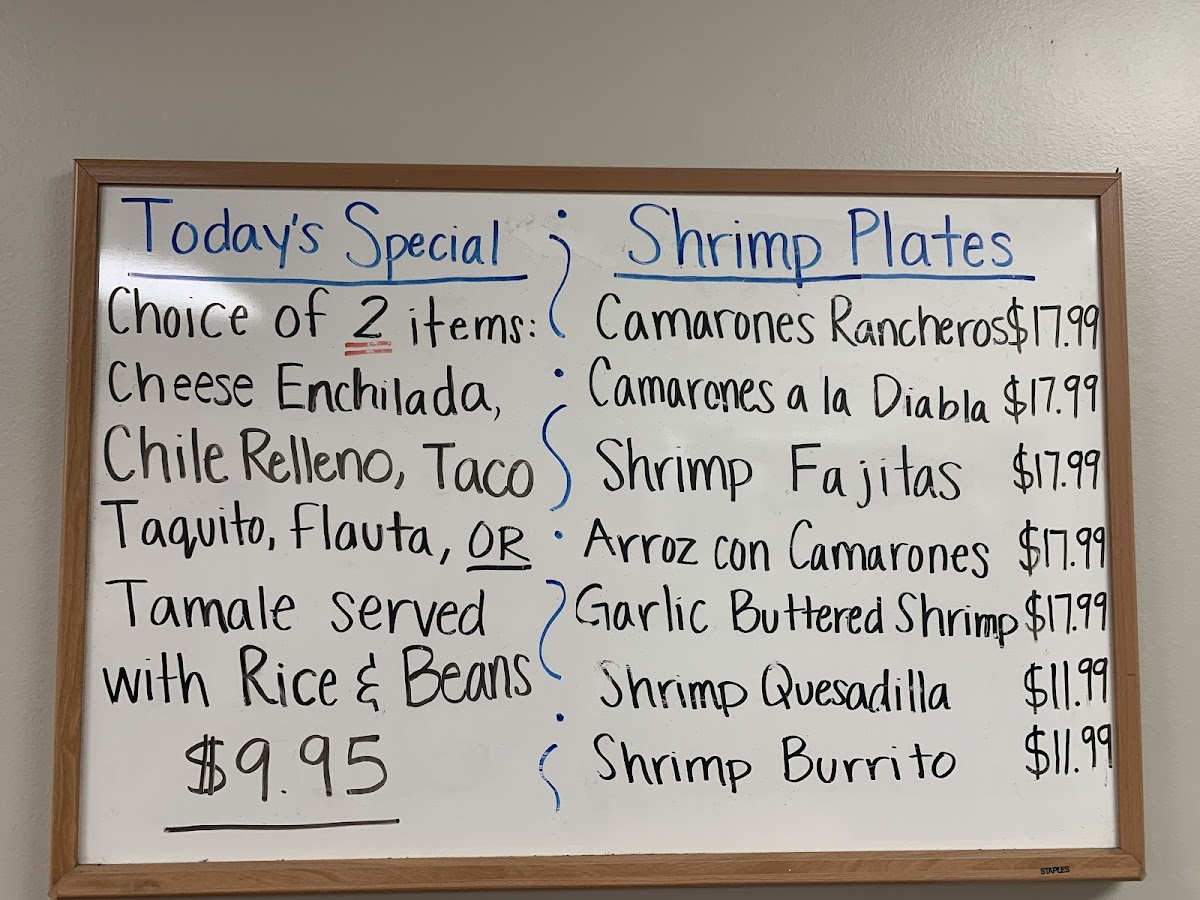 Today's Special
Choice of 2 items:
Cheese Enchilada,
Chile Relleno, Taco
Taquito, Flauta, OR
Tamale served
with Rice & Beans
$9.95
Shrimp Plates
Camarones Rancheros $17.99
Camarones a la Diabla $17.99
Shrimp Fajitas $17.99
Arroz con Camarones $17.99
Garlic Buttered Shrimp $17.99
Shrimp Quesadilla $11.99
Shrimp Burrito $11.99
STAPLES